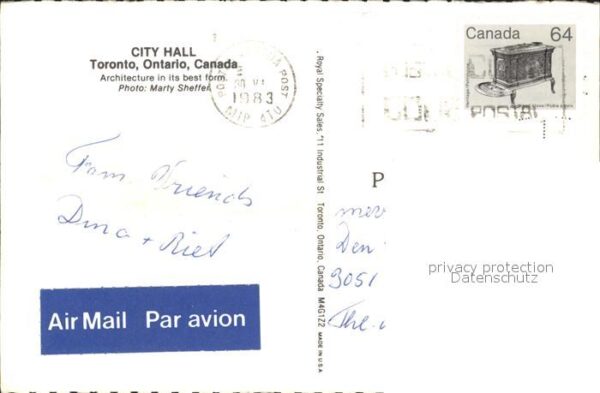 CITY HALL
Toronto, Ontario, Canada
Architecture in its best form.
Photo: Marty Sheffer
POST
30 VI
1983
M1P 4T0
Canada 64
POSTAL
From Friends
Dina + Riet
Air Mail Par avion
Royal Specialty Sales, 11 Industrial St Toronto, Ontario, Canada M4G1Z2
MADE IN U.S.A.
P
Den
3051
The
privacy protection
Datenschutz